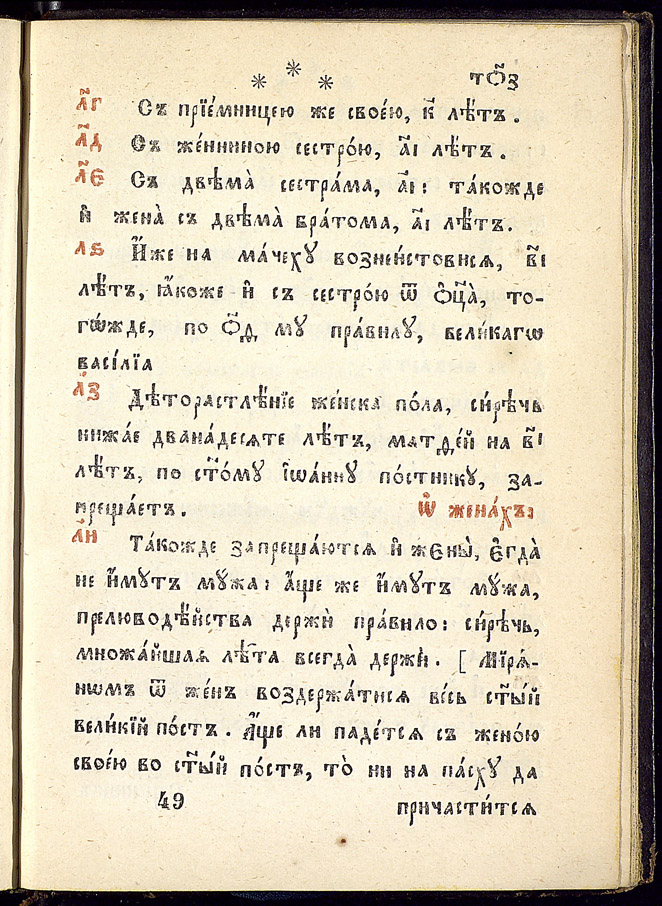 * * * тѲ҃З
л҃г Съ прїе́мницею же своє́ю, к҃ лѣ́тъ.
л҃д Съ же́ниною сестро́ю, а҃і лѣ́тъ.
л҃є Съ двѣма̀ сестра́ма, а҃і: та́кожде
и҆ жена̀ съ двѣма̀ бра́тома, а҃і лѣ́тъ.
лѕ И҆́же на ма́чеху вознеи́стовися, в҃і
лѣ́тъ, ꙗ҆́коже и҆ съ сестро́ю ѿ ѻ҆ц҃а̀, то-
гѡ́жде, по ѻ҃д му пра́вилу, вели́кагѡ
васі́лїа
л҃з Дѣторастлѣ́нїе же́нска по́ла, си́рѣчь
нижа́е двана́десяте лѣ́тъ, матѳе́й на в҃і
лѣ́тъ, по ст҃о́му і҆ѡа́нну по́стнику, за-
преща́етъ. Ѡ҆ жена́хъ:
л҃и Та́кожде запреща́ются и҆ жєны̀, є҆гда̀
не и҆́мутъ му́жа: а҆́ще же и҆́мутъ му́жа,
прелюбодѣ́йства держѝ пра́вило: си́рѣчь,
множа́йшая лѣ́та всегда̀ держѝ. [ Мїря́-
нѡмъ ѿ же́нъ воздержа́тися ве́сь ст҃ы́й
вели́кїй по́стъ. А҆́ще ли паде́тся съ жено́ю
своє́ю во ст҃ы́й по́стъ, то̀ ни на па́сху да
49 причасти́тся